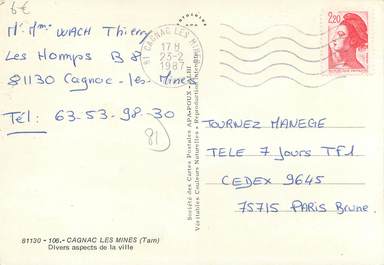 6€
Mr Mme WACH Thierry
Les Homps B 8
81130 Cagnac-les-Mines
Tél: 63-53-98-30
81
81 CAGNAC LES MINES
17 H
23-2
1987
2,20
TOURNEZ MANEGE
TELE 7 Jours TF1
CEDEX 9645
75715 PARIS Brune.
Société des Cartes Postales APA-POUX - ALBI
Véritables Couleurs Naturelles - Reproduction Interdite
81130 - 106.- CAGNAC LES MINES (Tarn)
Divers aspects de la ville